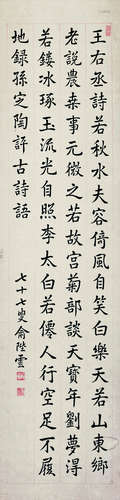 王右丞詩若秋水夫容倚風自笑白樂天若山東鄉
老說農桑事元微之若故宮菊部談天寶年劉夢得
若鏤冰琢玉流光自照李太白若僊人行空足不履
地録孫定陶評古詩語
七十七叟俞陛雲